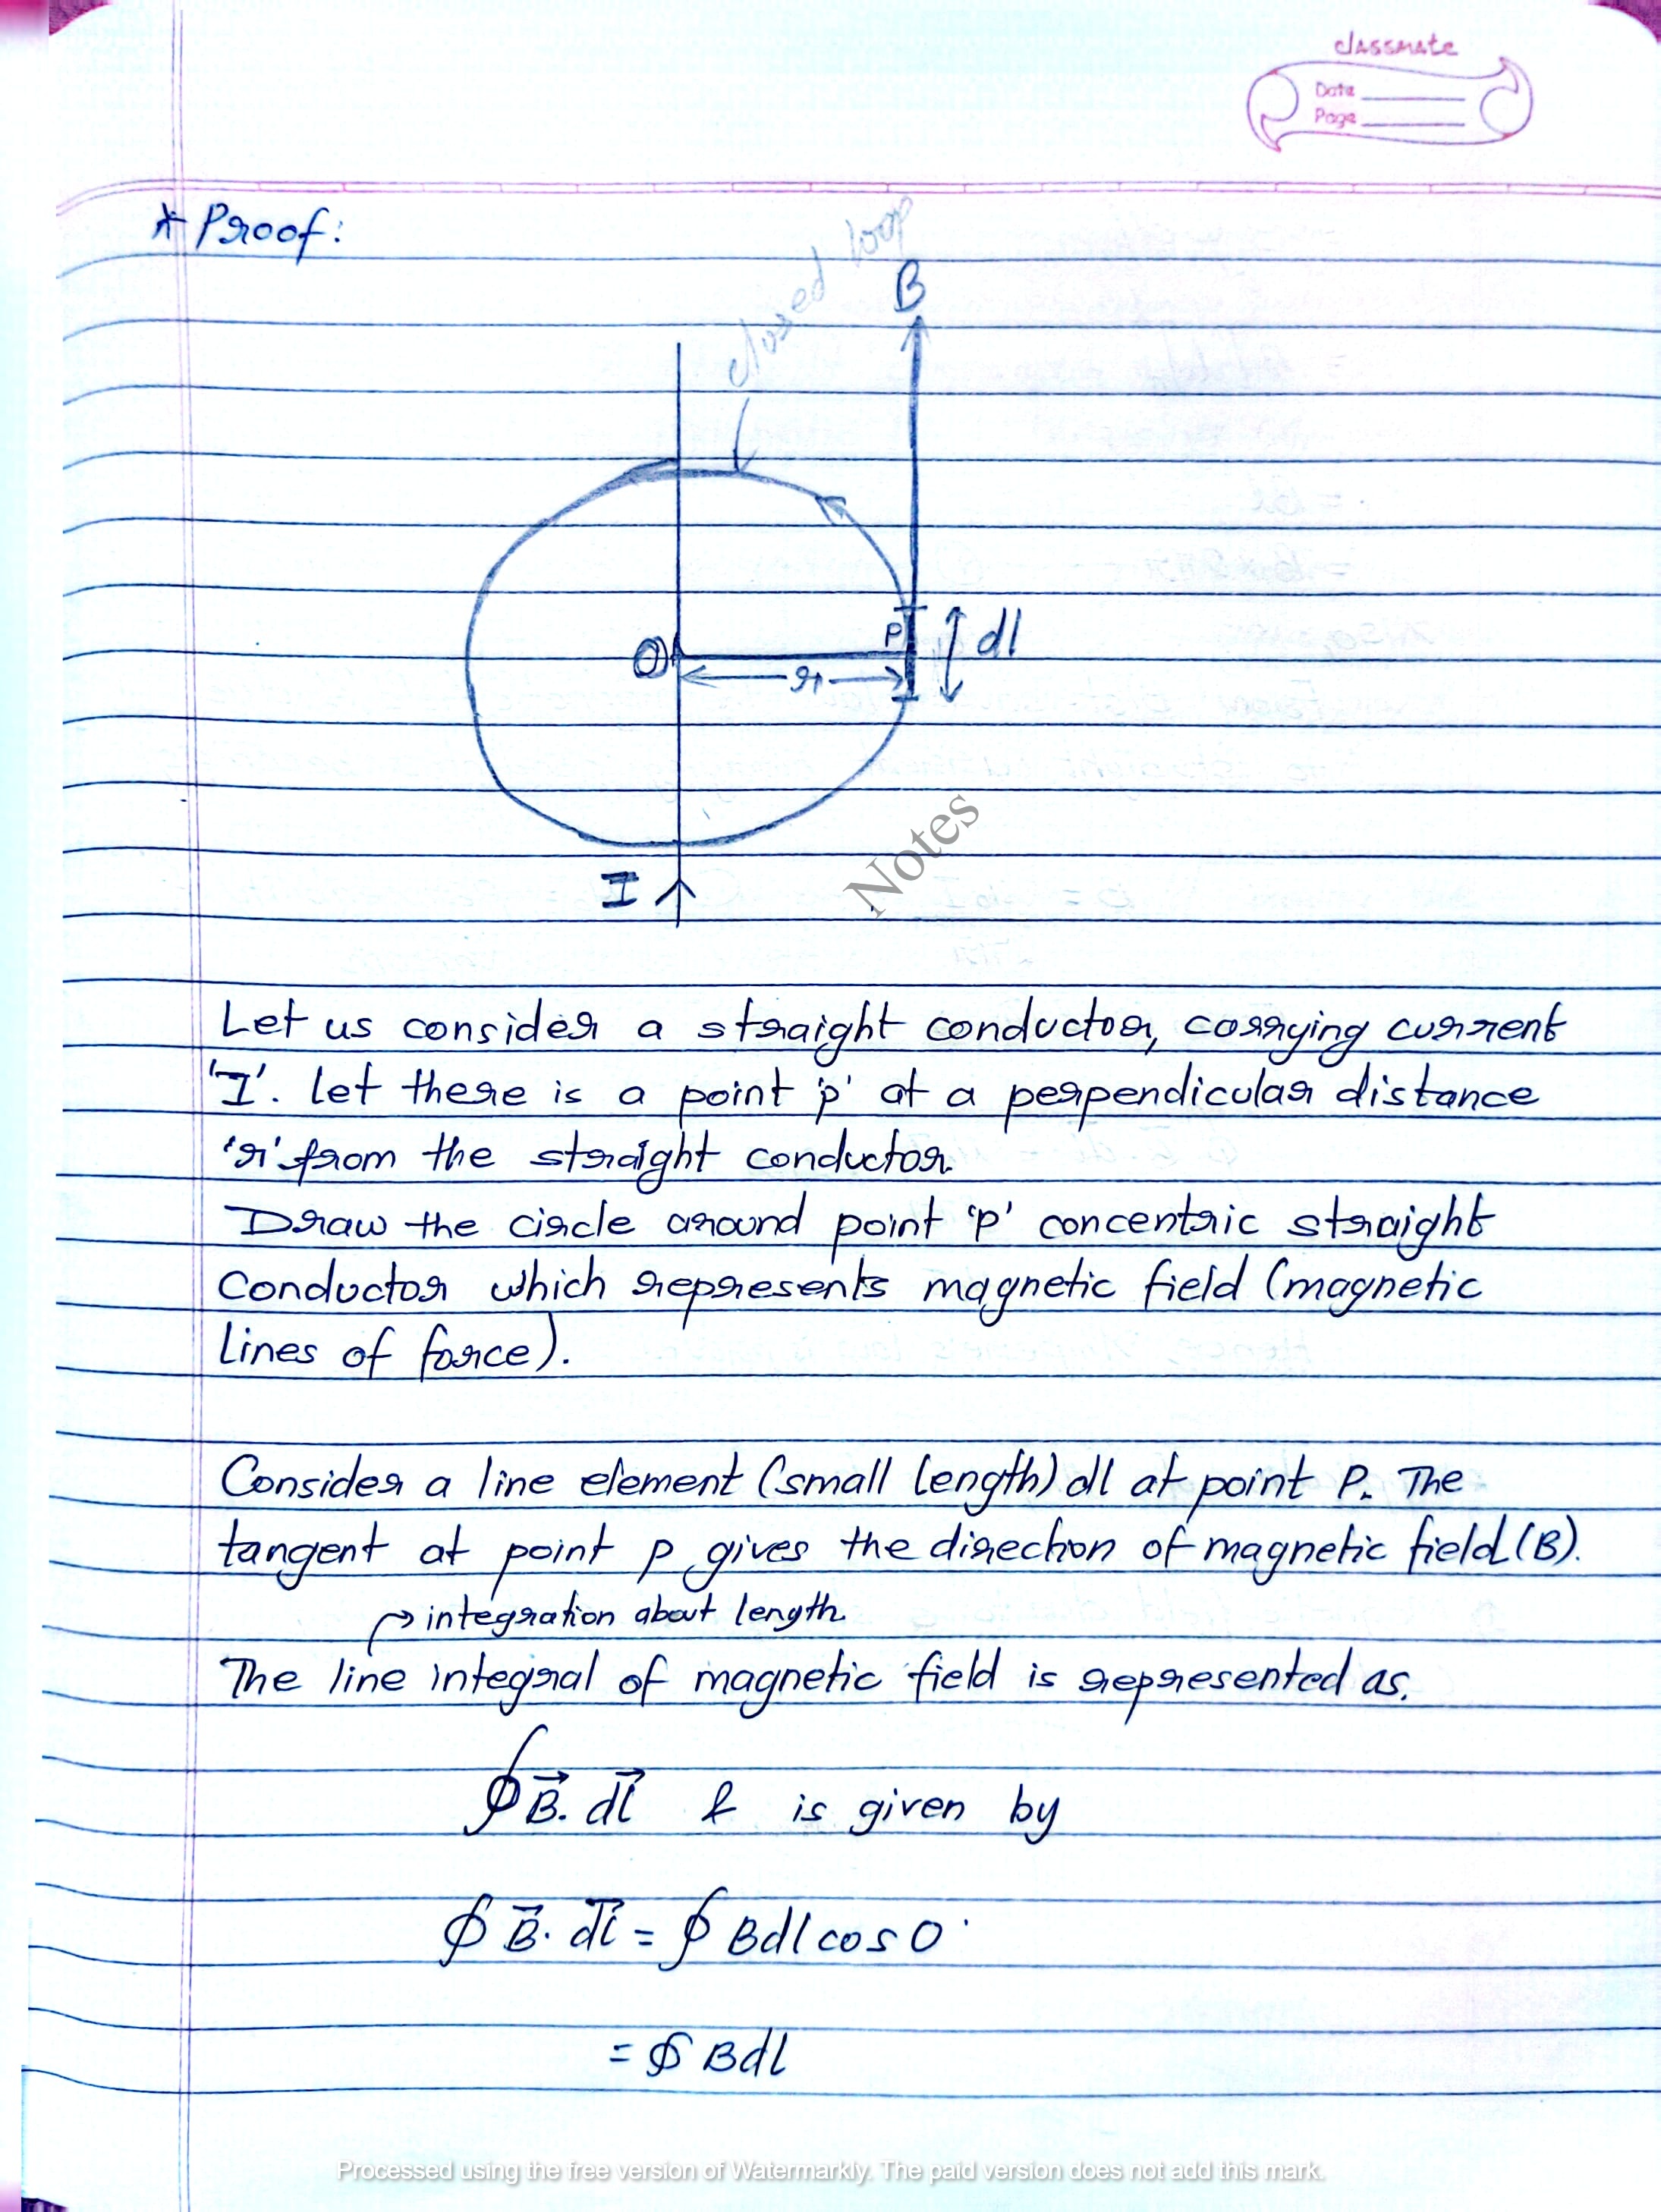 classmate
Date
Page
* Proof:
closed loop
B
P
dl
O
r
I
Notes
Let us consider a straight conductor, carrying current
'I'. let there is a point 'p' at a perpendicular distance
'r' from the straight conductor.
Draw the circle around point 'p' concentric straight
Conductor which represents magnetic field (magnetic
lines of force).
Consider a line element (small length) dl at point P. The
tangent at point p gives the direction of magnetic field (B).
→ integration about length
The line integral of magnetic field is represented as.
∮ B⃗. dl⃗ & is given by
∮ B⃗. dl⃗ = ∮ Bdl cos 0
= ∮ Bdl
Processed using the free version of Watermarkly. The paid version does not add this mark.